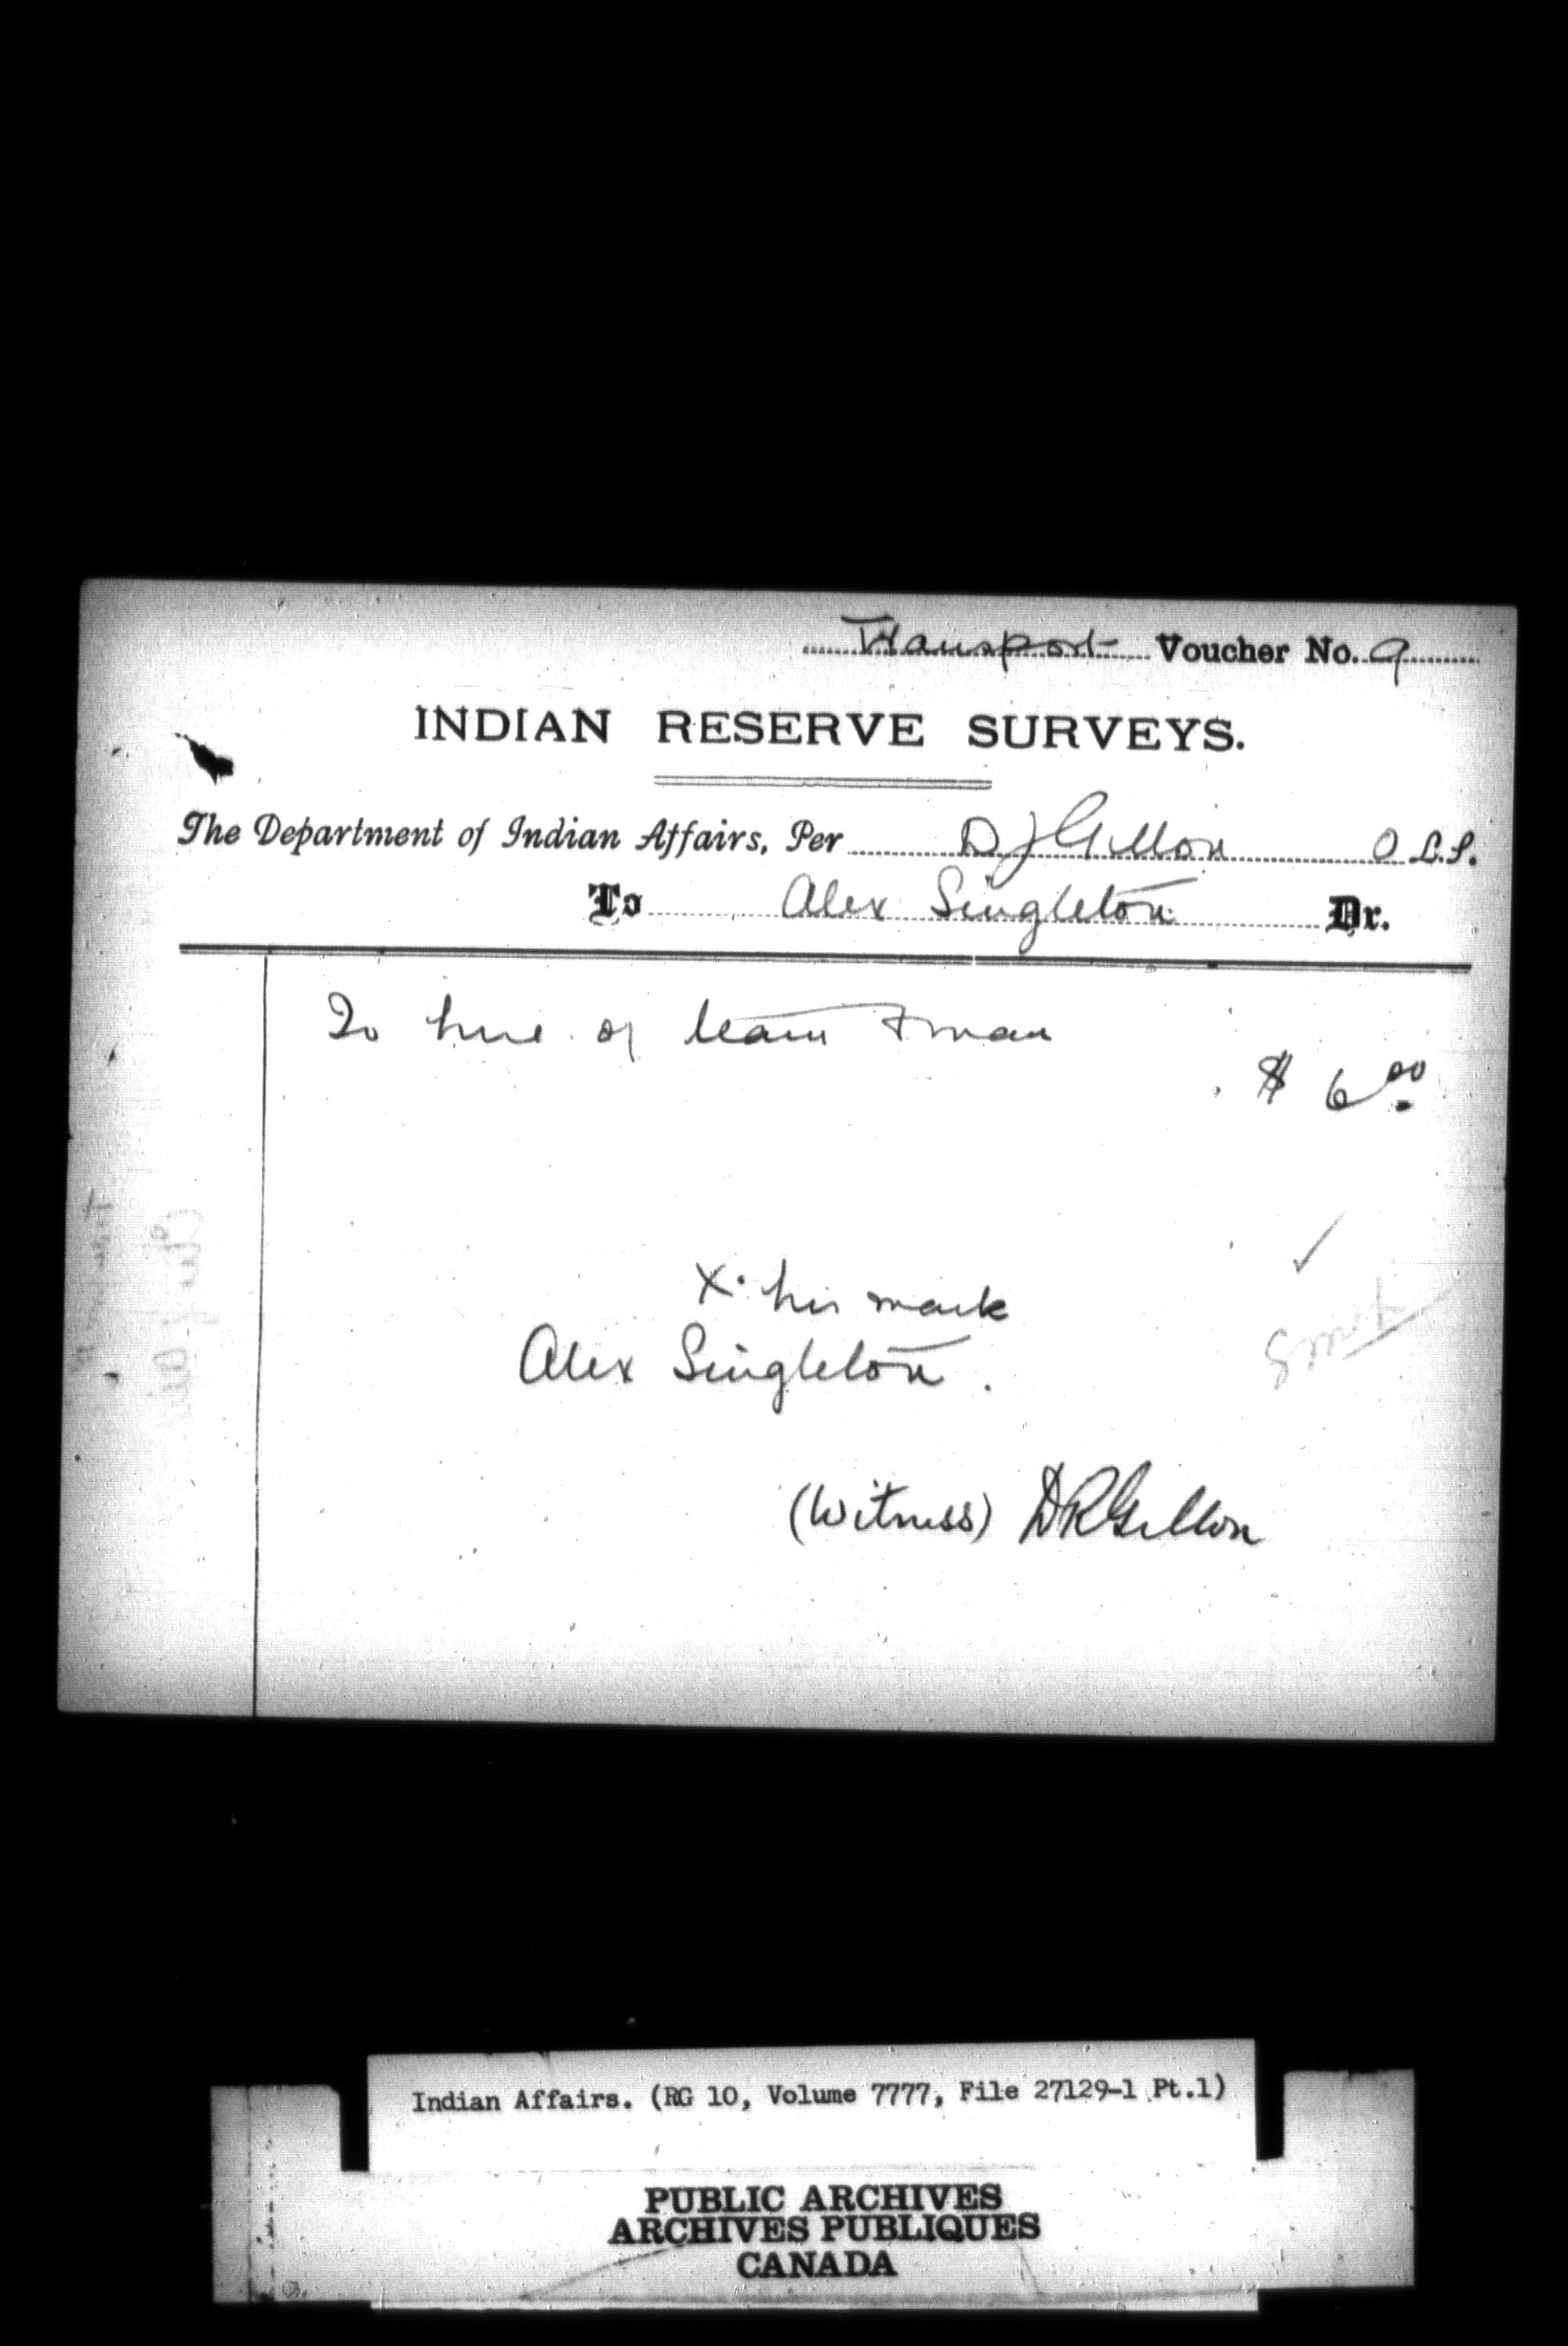 Transport Voucher No. 9
INDIAN RESERVE SURVEYS.
The Department of Indian Affairs, Per D J Gillon O L.S.
To Alex Singleton Dr.
To hire of team & man
$ 6 00
X his mark
Alex Singleton.
(Witness) D R Gillon
Indian Affairs. (RG 10, Volume 7777, File 27129-1 Pt.1)
PUBLIC ARCHIVES
ARCHIVES PUBLIQUES
CANADA